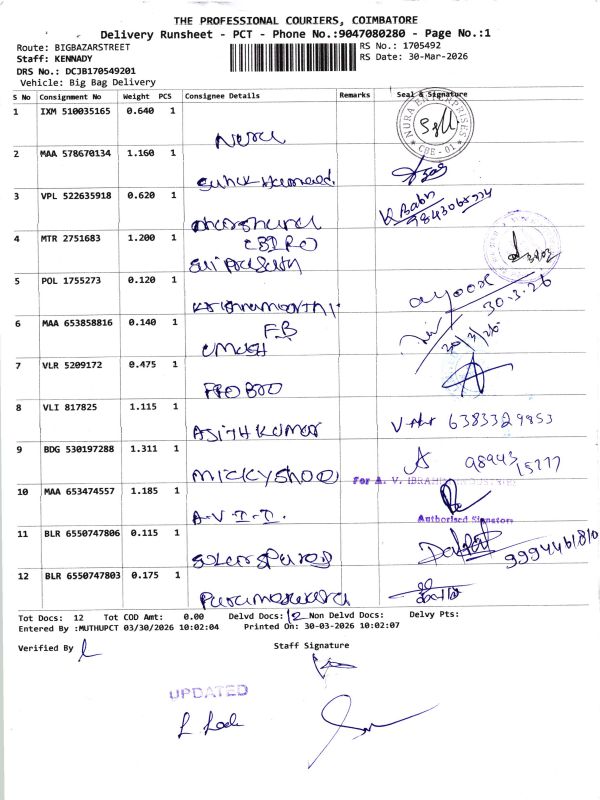 THE PROFESSIONAL COURIERS, COIMBATORE
Delivery Runsheet - PCT - Phone No.:9047080280 - Page No.:1
Route: BIGBAZARSTREET
RS No.: 1705492
Staff: KENNADY
RS Date: 30-Mar-2026
DRS No.: DCJB170549201
Vehicle: Big Bag Delivery
S No Consignment No Weight PCS Consignee Details Remarks Seal & Signature
1 IXM 510035165 0.640 1
NURA ENTERPRISES
CBE - 01
Nura
2 MAA 578670134 1.160 1
3 VPL 522635918 0.620 1
K Babu
9843068774
4 MTR 2751683 1.200 1
Sri Prasath
5 POL 1755273 0.120 1
Krishnamoorthi
ayoox
30.3.26
6 MAA 653858816 0.140 1
FB
Umesh
30/3/26
7 VLR 5209172 0.475 1
8 VLI 817825 1.115 1
Ajith Kumar
6383329853
9 BDG 530197288 1.311 1
Mickyshoo
98943 15777
10 MAA 653474557 1.185 1
For A. V. IBRAHIM INDUSTRIES
A.V.I.I.
Authorised Signatory
11 BLR 6550747806 0.115 1
9994461810
12 BLR 6550747803 0.175 1
Tot Docs: 12 Tot COD Amt: 0.00 Delvd Docs: 12 Non Delvd Docs: Delvy Pts:
Entered By :MUTHUPCT 03/30/2026 10:02:04 Printed On: 30-03-2026 10:02:07
Verified By
Staff Signature
UPDATED